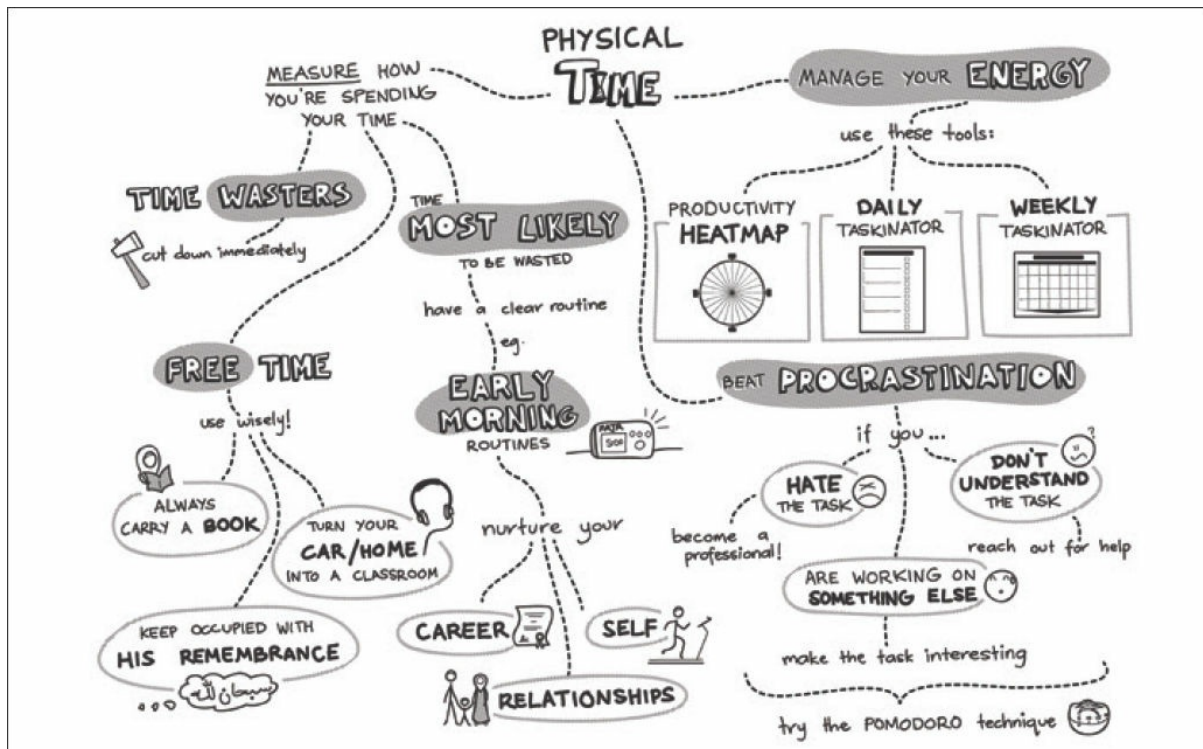 PHYSICAL
TIME
MEASURE HOW
YOU'RE SPENDING
YOUR TIME
TIME WASTERS
cut down immediately
TIME
MOST LIKELY
TO BE WASTED
have a clear routine
eg.
EARLY
MORNING
ROUTINES
FAJR
nurture your
CAREER
SELF
RELATIONSHIPS
FREE TIME
use wisely!
ALWAYS
CARRY A BOOK
TURN YOUR
CAR/HOME
INTO A CLASSROOM
KEEP OCCUPIED WITH
HIS REMEMBRANCE
سبحان الله
MANAGE YOUR ENERGY
use these tools:
PRODUCTIVITY
HEATMAP
DAILY
TASKINATOR
WEEKLY
TASKINATOR
BEAT PROCRASTINATION
if you...
HATE
THE TASK
become a
professional!
DON'T
UNDERSTAND
THE TASK
?
reach out for help
ARE WORKING ON
SOMETHING ELSE
make the task interesting
try the POMODORO technique